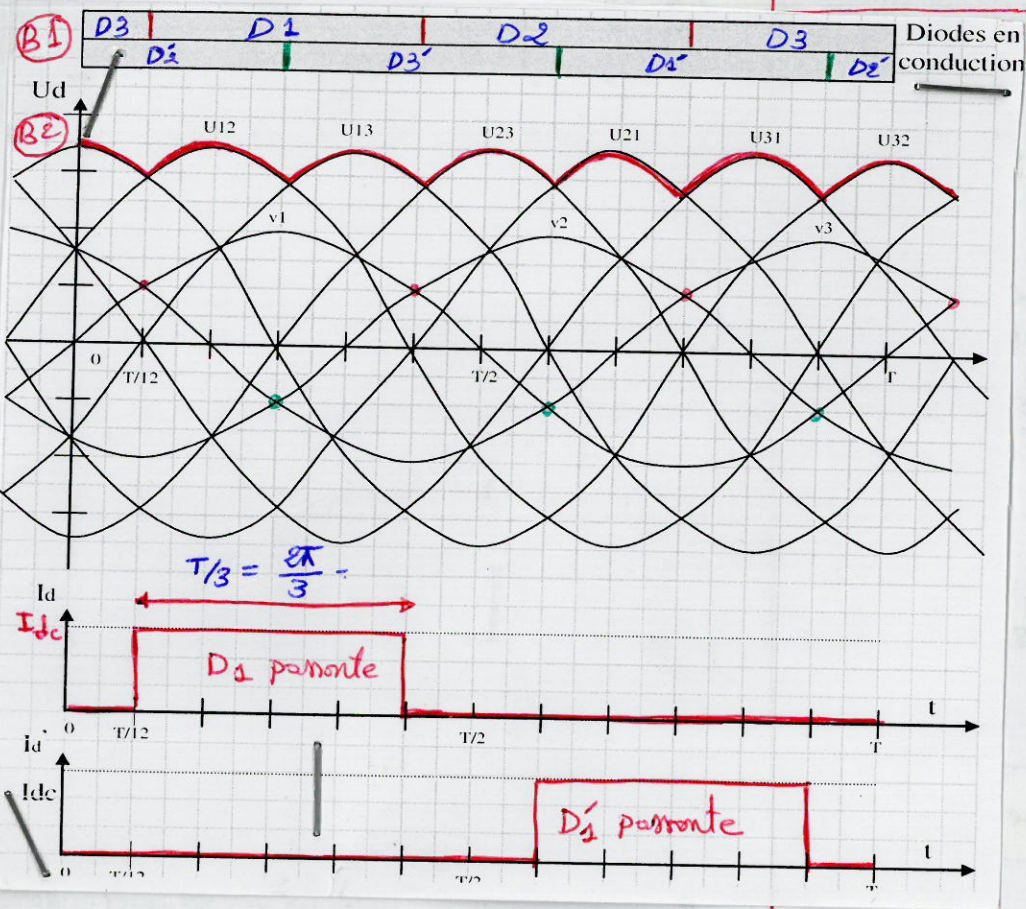 B1 D3 D1 D2 D3 Diodes en
D'2 D'3 D'1 D'2 conduction
Ud
B2 U12 U13 U23 U21 U31 U32
v1 v2 v3
0 T/12 T/2 T
T/3 = 2π/3
Id
Idc
D1 passante
0 T/12 T/2 T t
id'
Idc
D'1 passante
0 T/12 T/2 T t